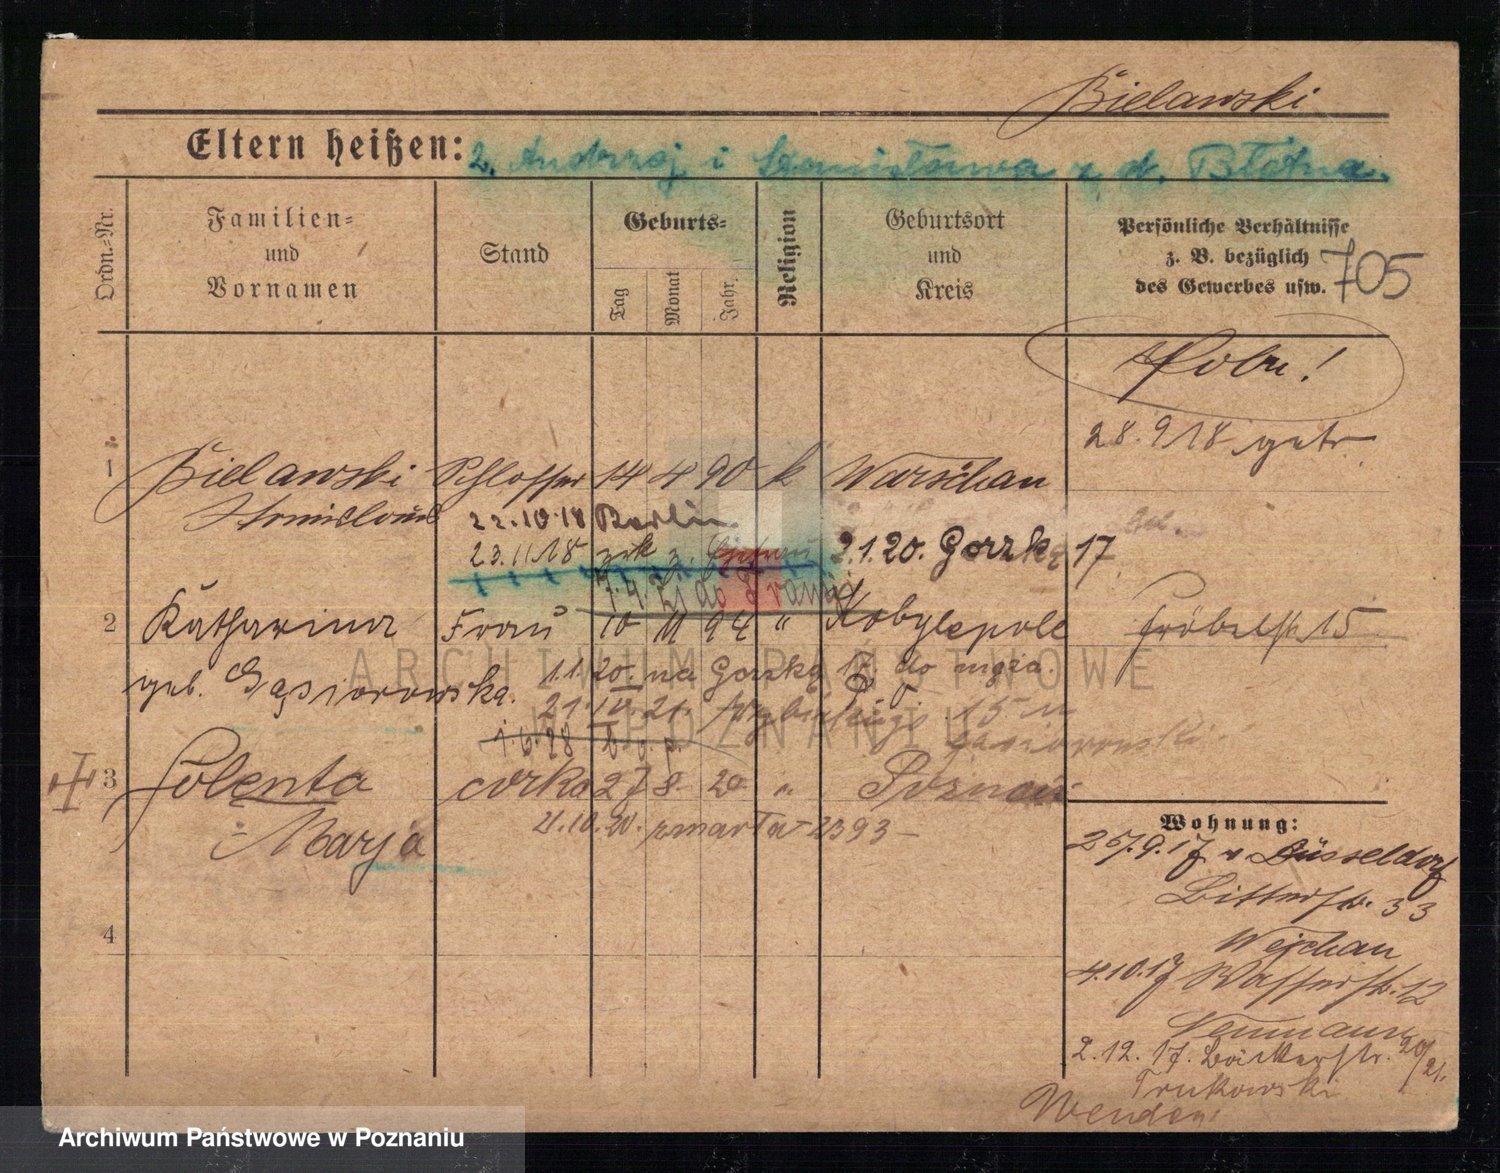 Bielawski
Eltern heißen: 2. Andrzej i Stanisława z d.
Ordn.=Nr.
Familien= und Vornamen
Stand
Geburts=
Tag
Monat
Jahr.
Religion
Geburtsort und Kreis
Persönliche Verhältnisse
z. B. bezüglich
des Gewerbes usw. 705
28.9.18 getr.
1 Bielawski Schlosser 14 4 90 k Warschau
Stanislaus 22.10.18 Berlin
23.11.18 zrk z. 2.1.20. Gorzka 17
7.4. do
2 Katharina Frau 10 11 94 " Kobylepole Fröbelstr. 15
geb. Gąsiorowska. 11.20. na Gorzka 17 do męża.
21. 15 u
Gąsiorowski.
1.6.28
3 Solenta córka 27 8 20 " Poznań
Marja 21.10.20. zmarła 2393
4
Wohnung:
25.9.17 v Düsseldorf
Bitterstr. 33
4.10.17 Wasserstr. 12
Neumann
2.12.17. Bäckerstr. 20/21.
Trukowski
Wenden!
ARCHIWUM PAŃSTWOWE
W POZNANIU
Archiwum Państwowe w Poznaniu